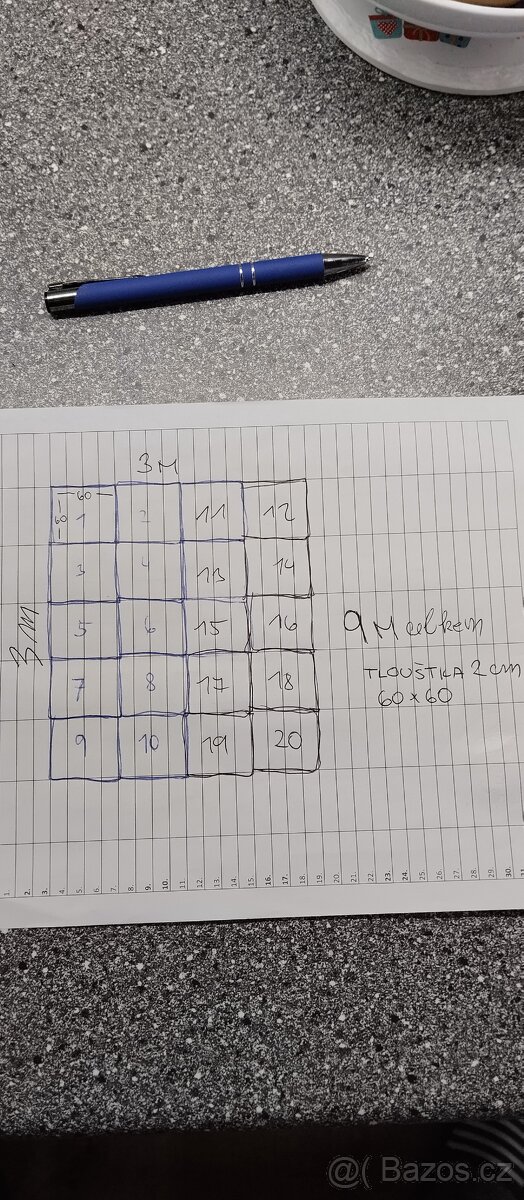 3 M
60
60
1 2 11 12
3 4 13 14
3 m
5 6 15 16
9 M celkem
7 8 17 18
TLOUŠŤKA 2 cm
60 x 60
9 10 19 20
1. 2. 3. 4. 5. 6. 7. 8. 9. 10. 11. 12. 13. 14. 15. 16. 17. 18. 19. 20. 21. 22. 23. 24. 25. 26. 27. 28. 29. 30.
@( Bazos.cz